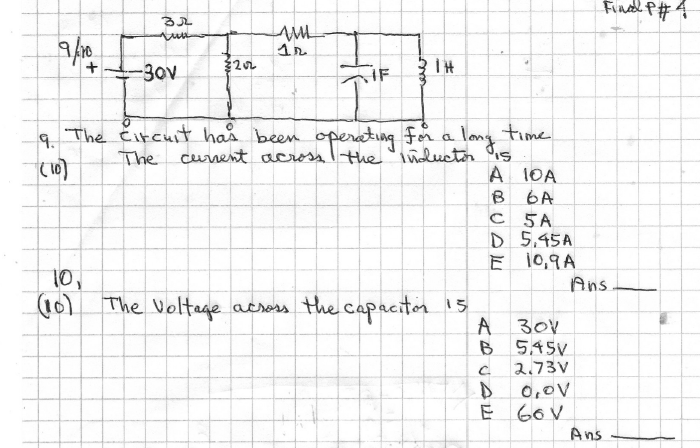 Final P# 4
9/10
3Ω
1Ω
+
30V
2Ω
1F
1H
9. The circuit has been operating for a long time
(10) The current across the inductor is
A 10A
B 6A
C 5A
D 5.45A
E 10.9A
Ans
10.
(10) The Voltage across the capacitor is
A 30V
B 5.45V
C 2.73V
D 0.0V
E 60V
Ans